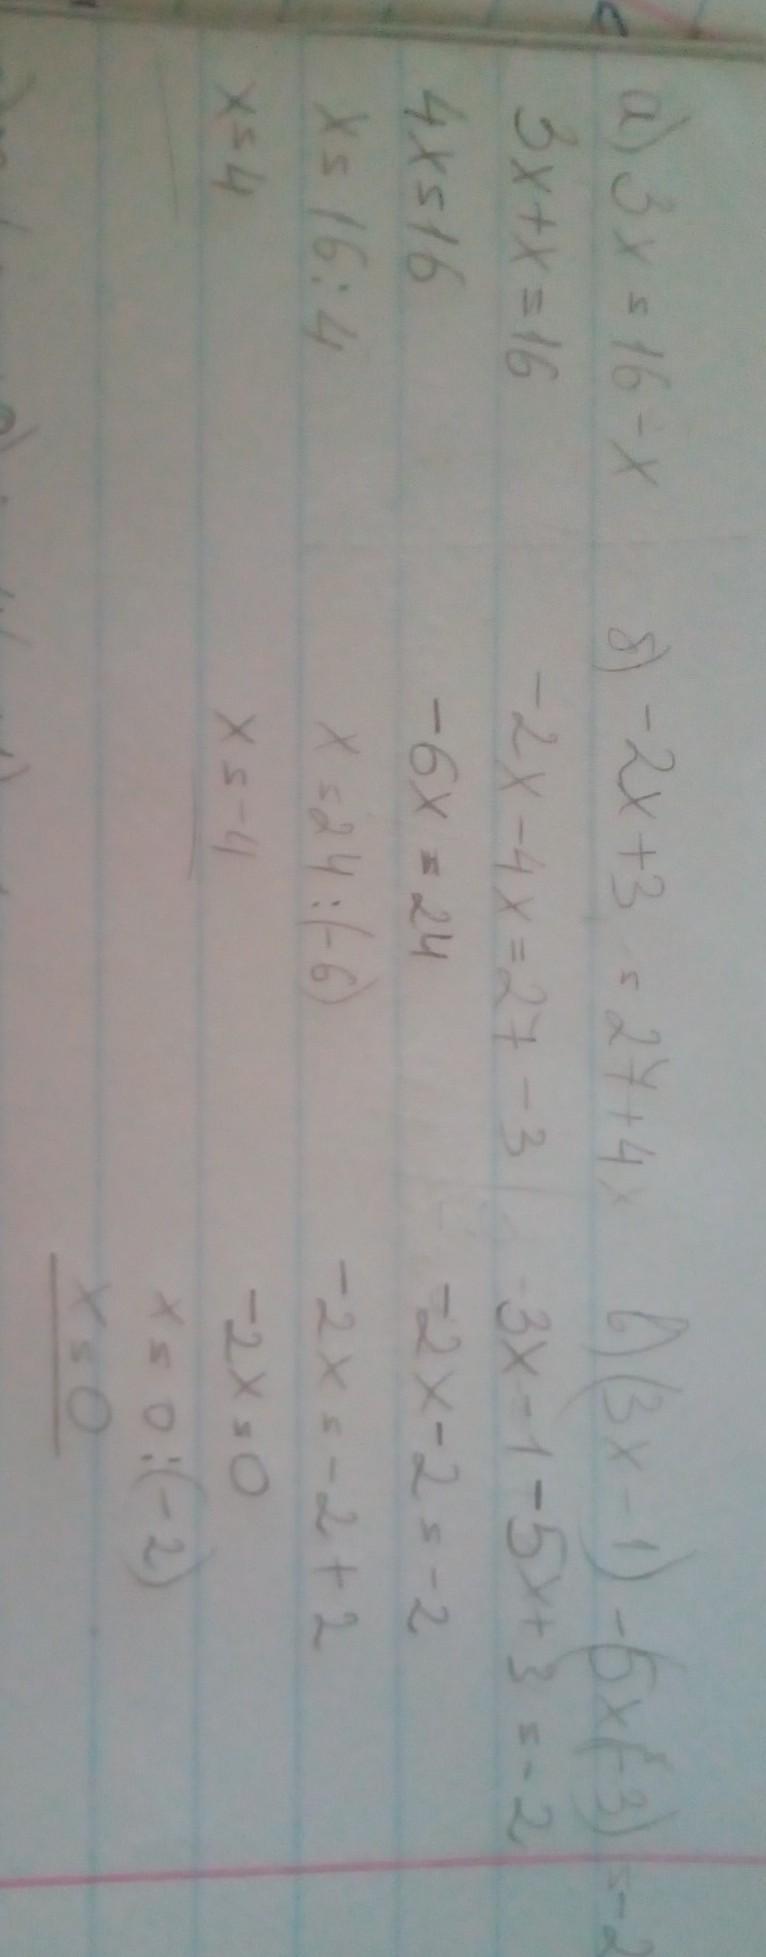 а) 3x = 16 - x
3x + x = 16
4x = 16
x = 16 : 4
x = 4
б) -2x + 3 = 27 + 4x
-2x - 4x = 27 - 3
-6x = 24
x = 24 : (-6)
x = -4
в) (3x - 1) - (5x - 3) = -2
3x - 1 - 5x + 3 = -2
-2x - 2 = -2
-2x = -2 + 2
-2x = 0
x = 0 : (-2)
x = 0